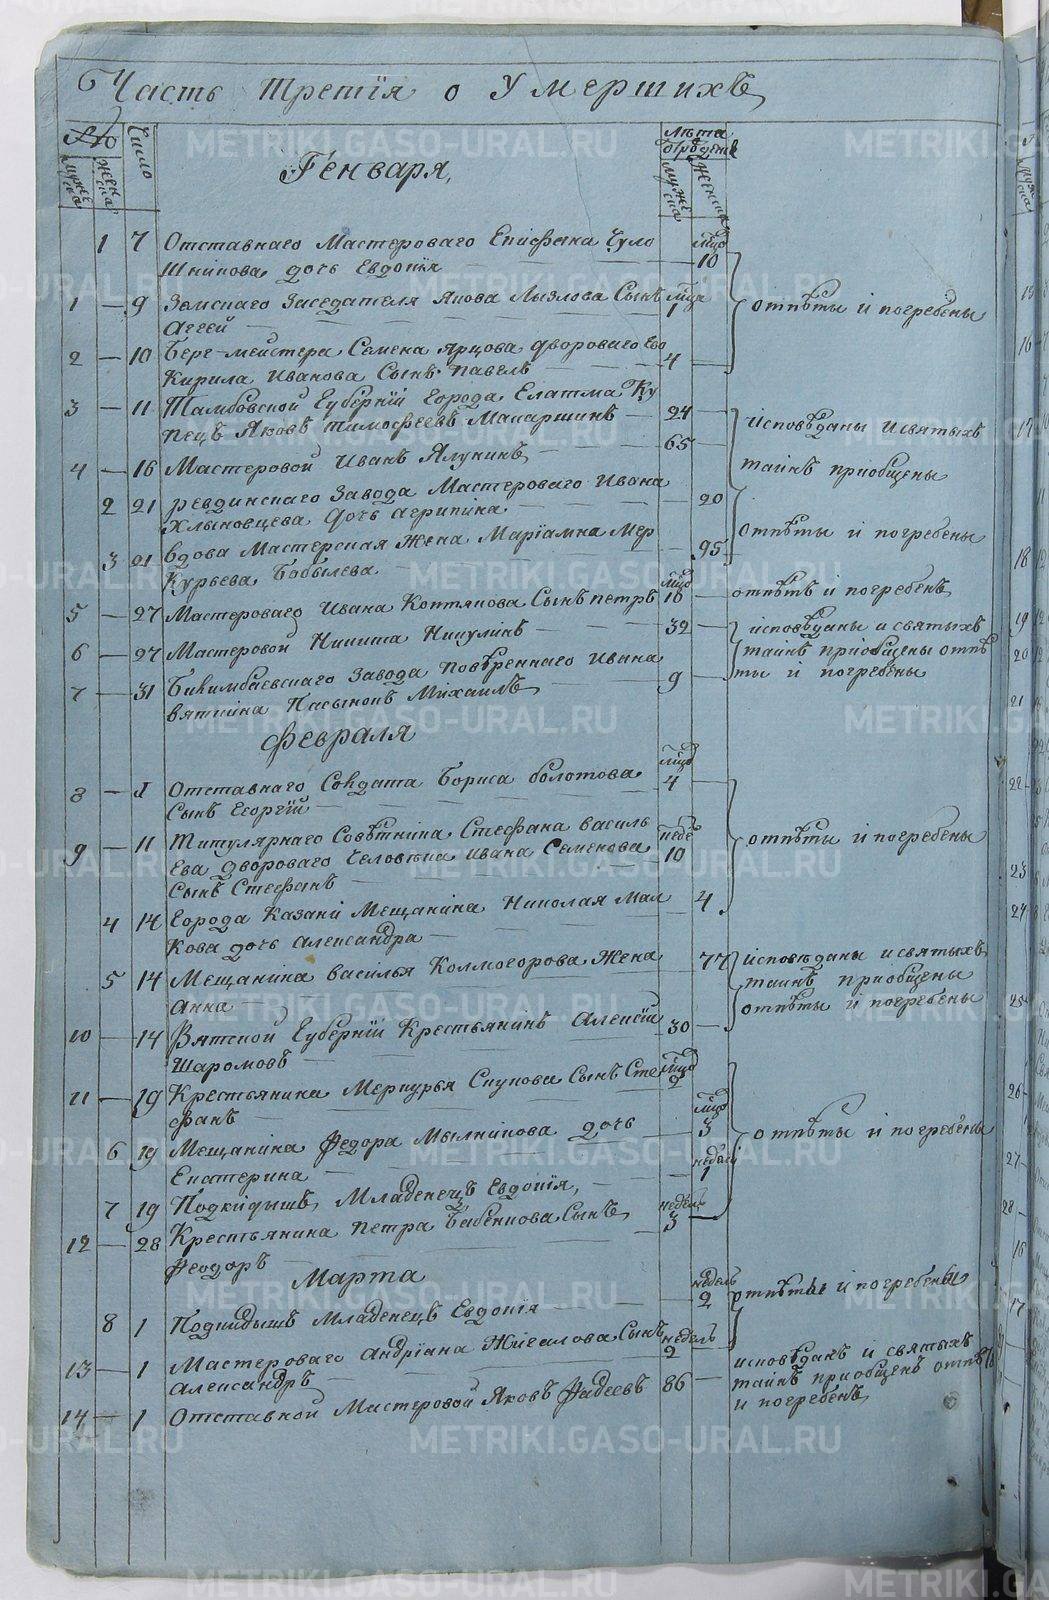 Часть Третïя о Умершихъ
№ Число Лѣта отрожденïя
мужеска женска мужеска женска
Генваря,
1 7 Отставнаго Мастероваго Епифана Чуло мцо
шникова дочь Евдокïя 10
1 — 9 Земскаго Заседателя Якова Лызлова Сынъ мца 1 отпѣты и погребены
Аггей
2 — 10 Берг-мейстера Семена Ярцова двороваго Ево 4
Кирила Иванова Сынъ Павелъ
3 — 11 Тамбовской Губернïи Города Елатма Ку 24
пецъ Яковъ Тимофеевъ Макаршинъ исповѣданы и святыхъ
4 — 16 Мастеровой Иванъ Ялунинъ 65 таинъ приобщены
2 21 ревдинскаго Завода Мастероваго Ивана 20
Хлыновцева дочь Агрипина отпѣты и погребены
3 21 вдова Мастерская Жена Марïамна Мер 95
Курьева Бобылева
5 — 27 Мастероваго Ивана Коптякова Сынъ Петръ мцо 10 отпѣтъ и погребенъ
6 — 27 Мастеровой Никита Никулинъ 32 исповѣданы и святыхъ
таинъ приобщены отпѣ
7 — 31 Бикимбаевскаго Завода Повѣреннаго Ивана 9 ты и погребены
вяткина Пасынокъ Михаилъ
Февраля
8 — 1 Отставнаго Солдата Бориса болотова мцо 4
Сынъ Георгïй
9 — 11 Титулярнаго Совѣтника Стефана Василь неде 10 отпѣты и погребены
Ева двороваго Человѣка Ивана Семенова
Сынъ Стефанъ
4 14 Города Казани Мещанина Николая Мал 4
Кова дочь Александра
5 14 Мещанина Василья Колмогорова Жена 77 исповѣданы и святыхъ
Анна таинъ приобщены
10 — 14 Вятской Губернïи Крестьянинъ Алексïи 30 отпѣты и погребены
Шаромовъ
11 — 19 Крестьянина Меркурья Скукова Сынъ Сте мцо 9
фанъ
6 19 Мещанина Федора Мылникова дочь мцо 3 отпѣты и погребены
Екатерина
7 19 Подкидышъ Младенецъ Евдокïя, недель 1
12 — 28 Крестьянина Петра Бабенкова Сынъ недель 3
Феодоръ
Марта
8 1 Подкидышъ Младенецъ Евдокïя недель 2 отпѣты и погребены
13 — 1 Мастероваго Андрïана Жигалова Сынъ недель 2
Александръ исповѣданъ и святыхъ
14 — 1 Отставной Мастеровой Яковъ Фадеевъ 86 — таинъ приобщенъ отпѣтъ
и погребенъ